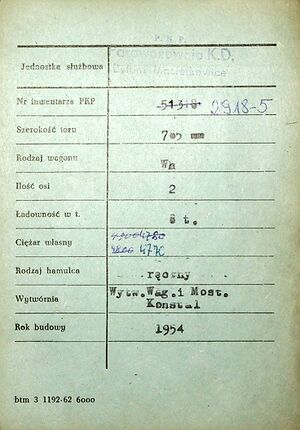 P. K. P.
Jednostka służbowa K.D.
Nr inwentarza PKP 51318 2918-5
Szerokość toru mm
Rodzaj wagonu
Ilość osi 2
Ładowność w t. 8 t.
Ciężar własny 4780
4770
Rodzaj hamulca ręczny
Wytwórnia Wytw.Wag.i Most.
Konstal
Rok budowy 1954
btm 3 1192-62 6000